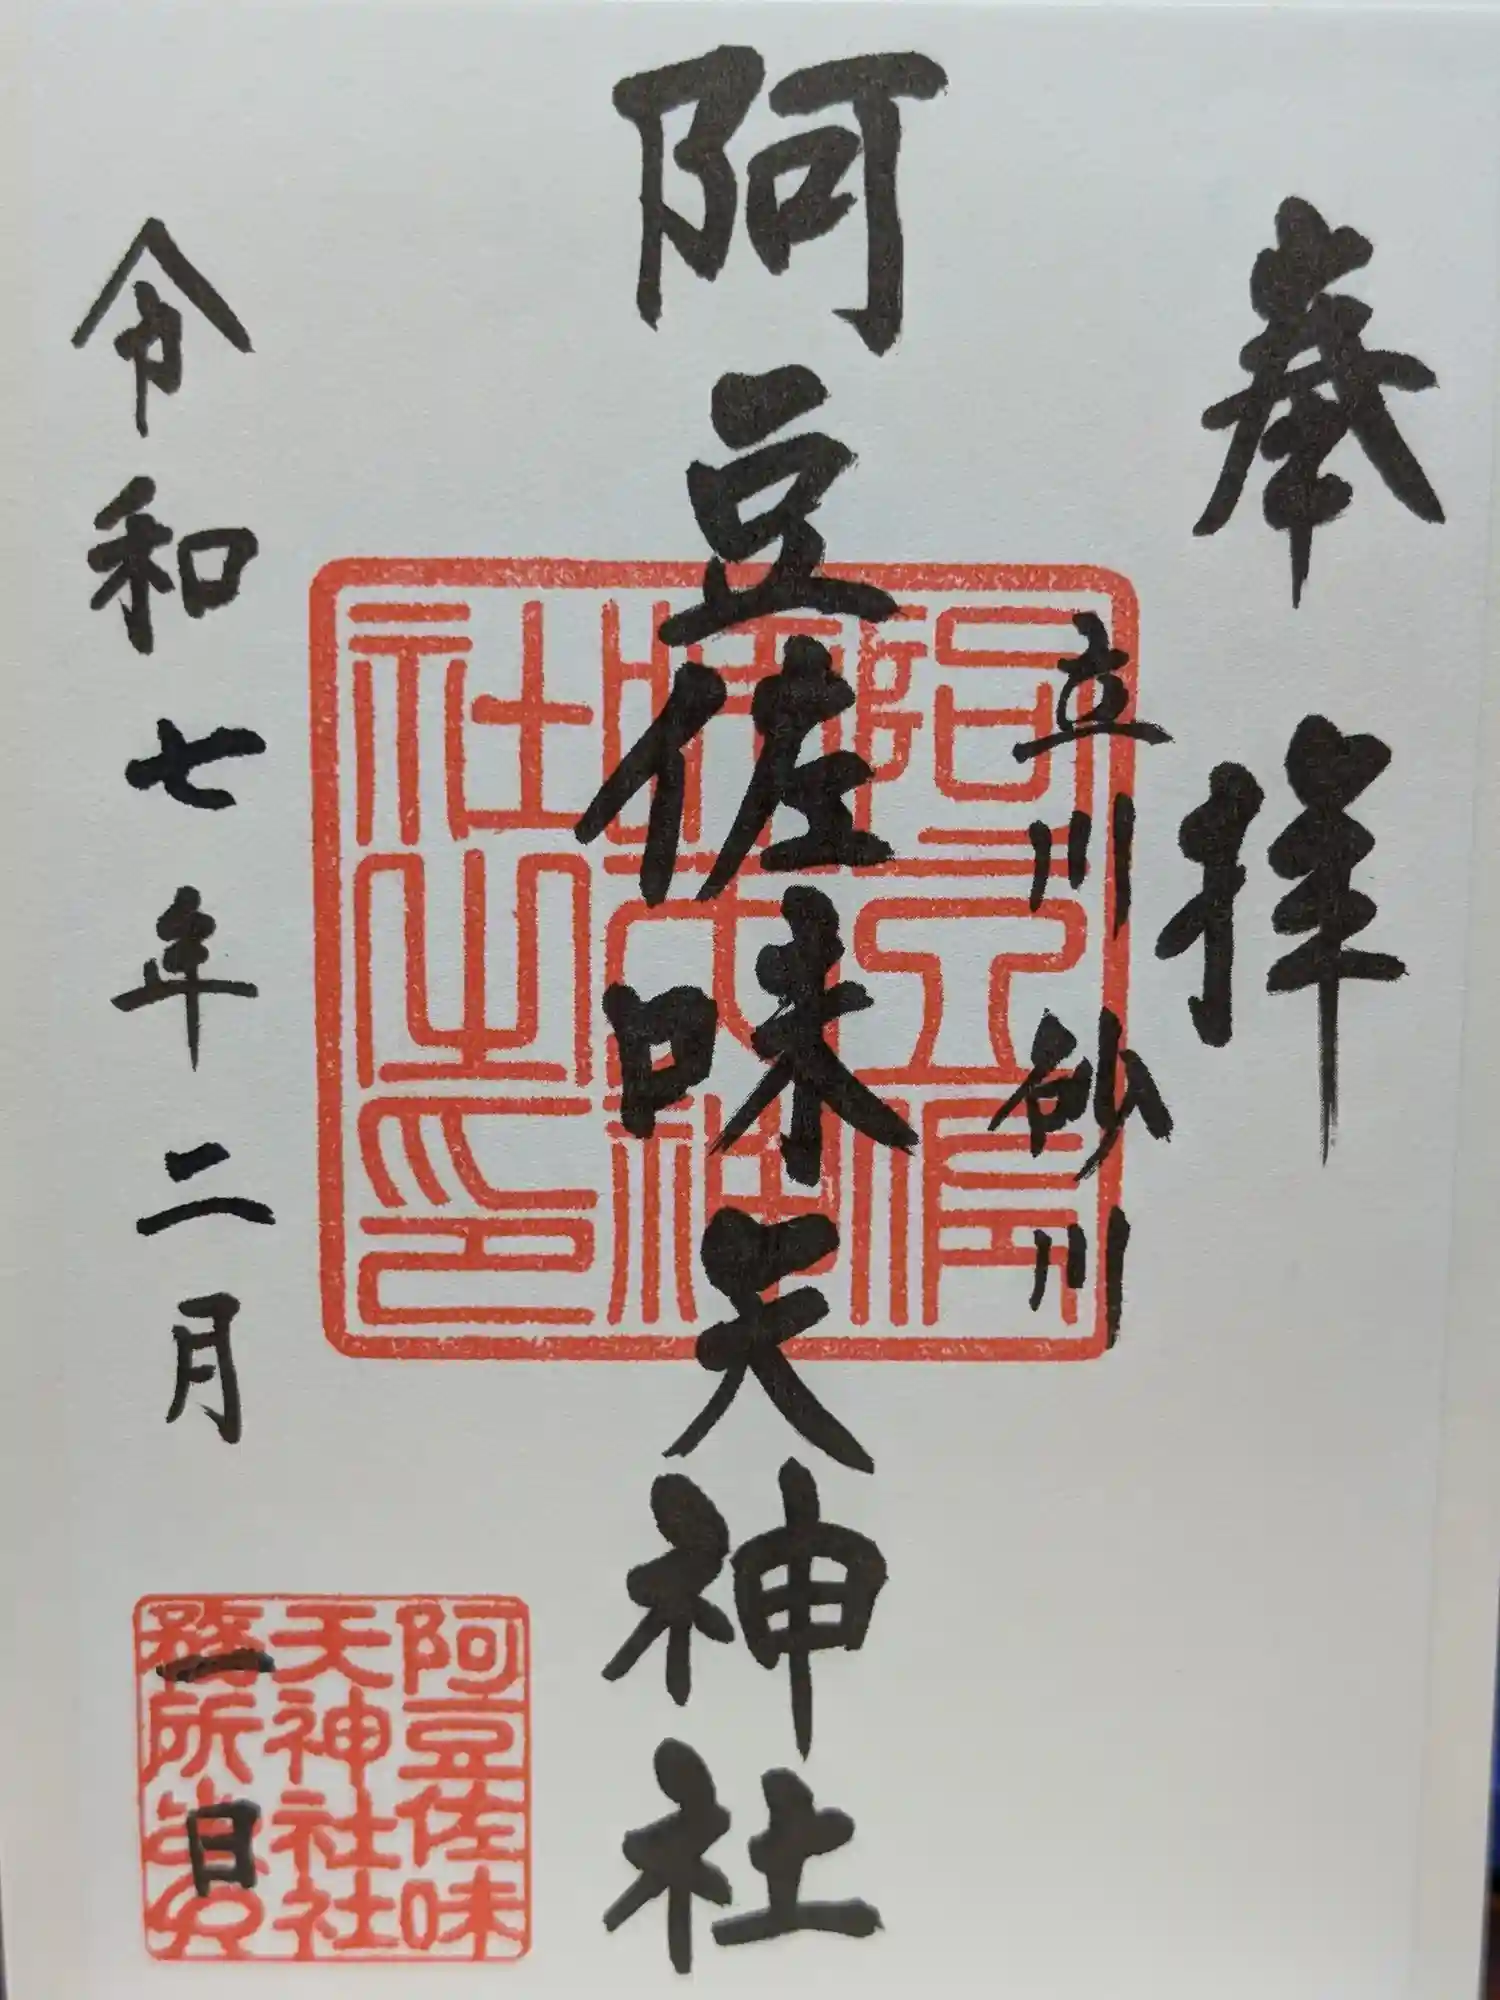 奉拝
立川砂川
阿豆佐味天神社
令和七年二月一日
阿豆佐味
天神社社
務所之印
阿豆佐味天神社之印